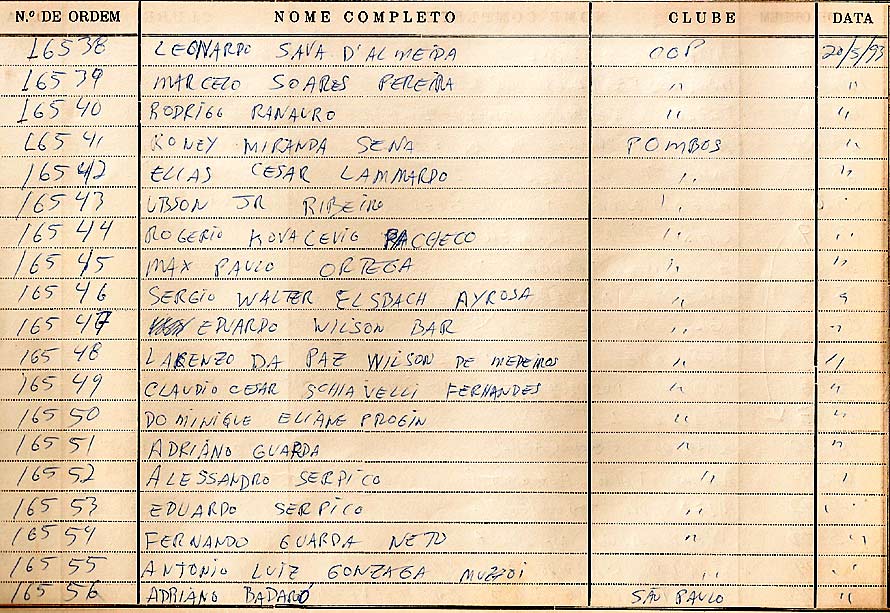 N.º DE ORDEM NOME COMPLETO CLUBE DATA
16538 LEONARDO SAVA D'ALMEIDA COP 20/5/93
16539 MARCELO SOARES PEREIRA " "
16540 RODRIGO RANAURO " "
16541 RONEY MIRANDA SENA POMBOS "
16542 ELIAS CESAR LAMMARDO " "
16543 UBSON JR RIBEIRO " "
16544 ROGERIO KOVACEVIC PACHECO " "
16545 MAX PAULO ORTEGA " "
16546 SERGIO WALTER ELSBACH AYROSA " "
16547 EDUARDO WILSON BAR " "
16548 LORENZO DA PAZ WILSON DE MEDEIROS " "
16549 CLAUDIO CESAR SCHIAVELLI FERNANDES " "
16550 DOMINIQUE ELIANE PROGIN " "
16551 ADRIANO GUARDA " "
16552 ALESSANDRO SERPICO " "
16553 EDUARDO SERPICO " "
16554 FERNANDO GUARDA NETO " "
16555 ANTONIO LUIZ GONZAGA " "
16556 ADRIANO BADARÓ SÃO PAULO "